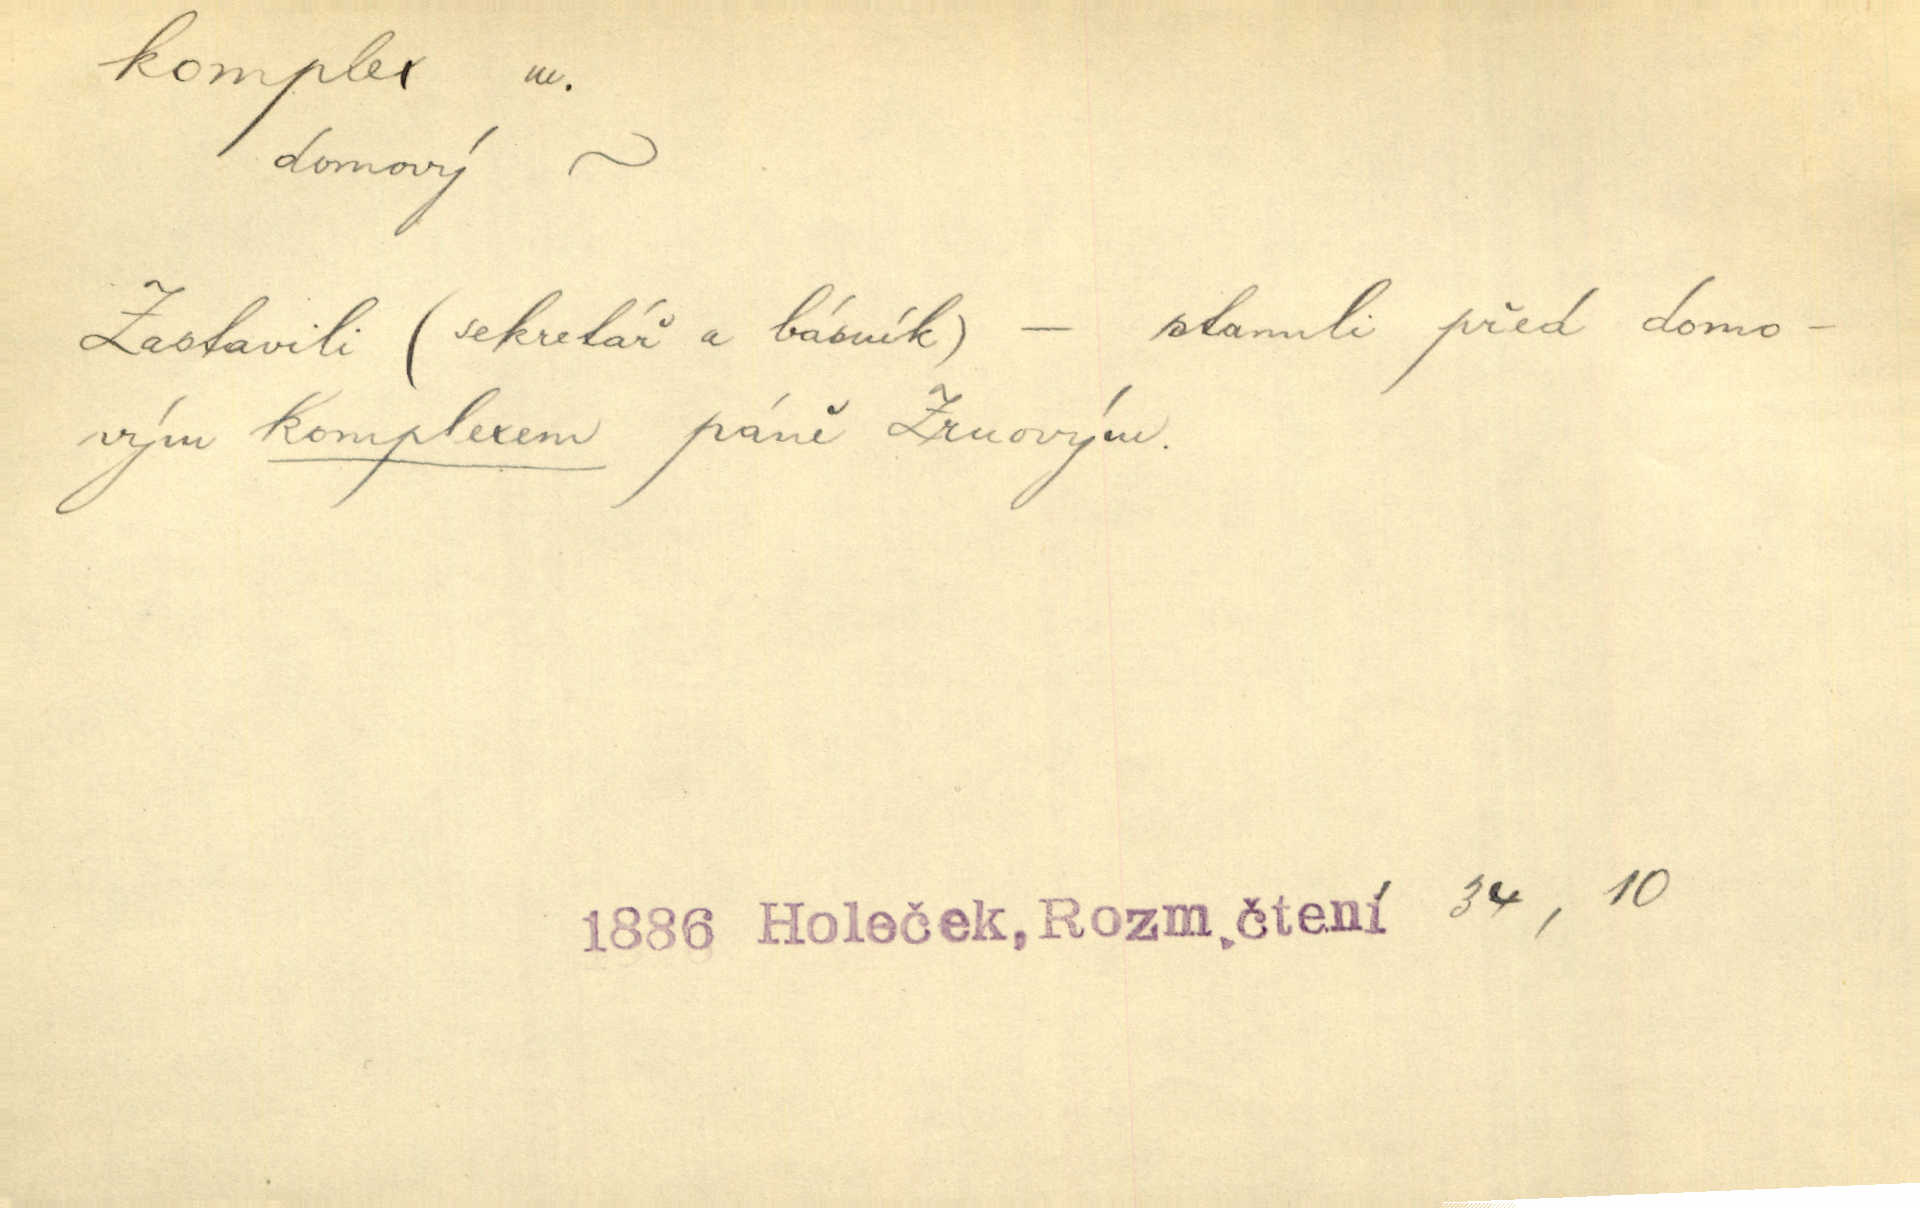 komplex m.
domový ~
Zastavili (sekretář a básník) — stanuli před domo-
vým komplexem páně Zrnovým.
1886 Holeček, Rozm. čtení 34, 10